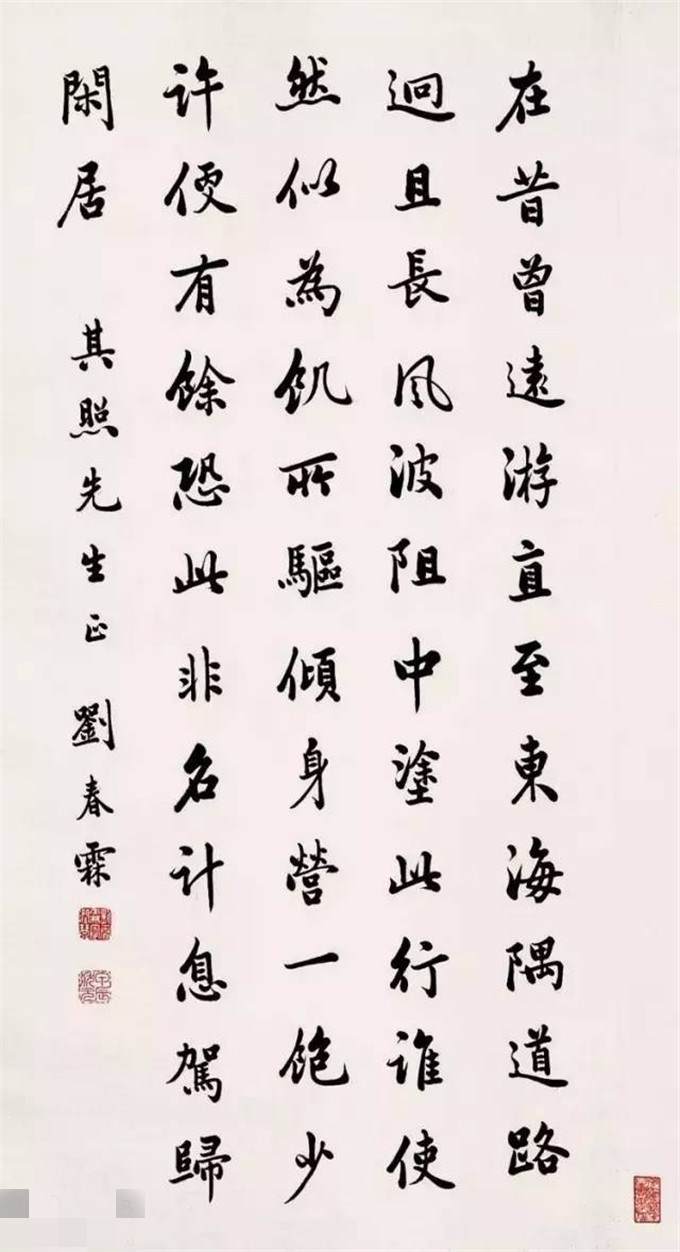 在昔曾遠游直至東海隅道路
迥且長風波阻中塗此行誰使
然似為飢所驅傾身營一飽少
許便有餘恐此非名計息駕歸
閑居
其照先生正 劉春霖